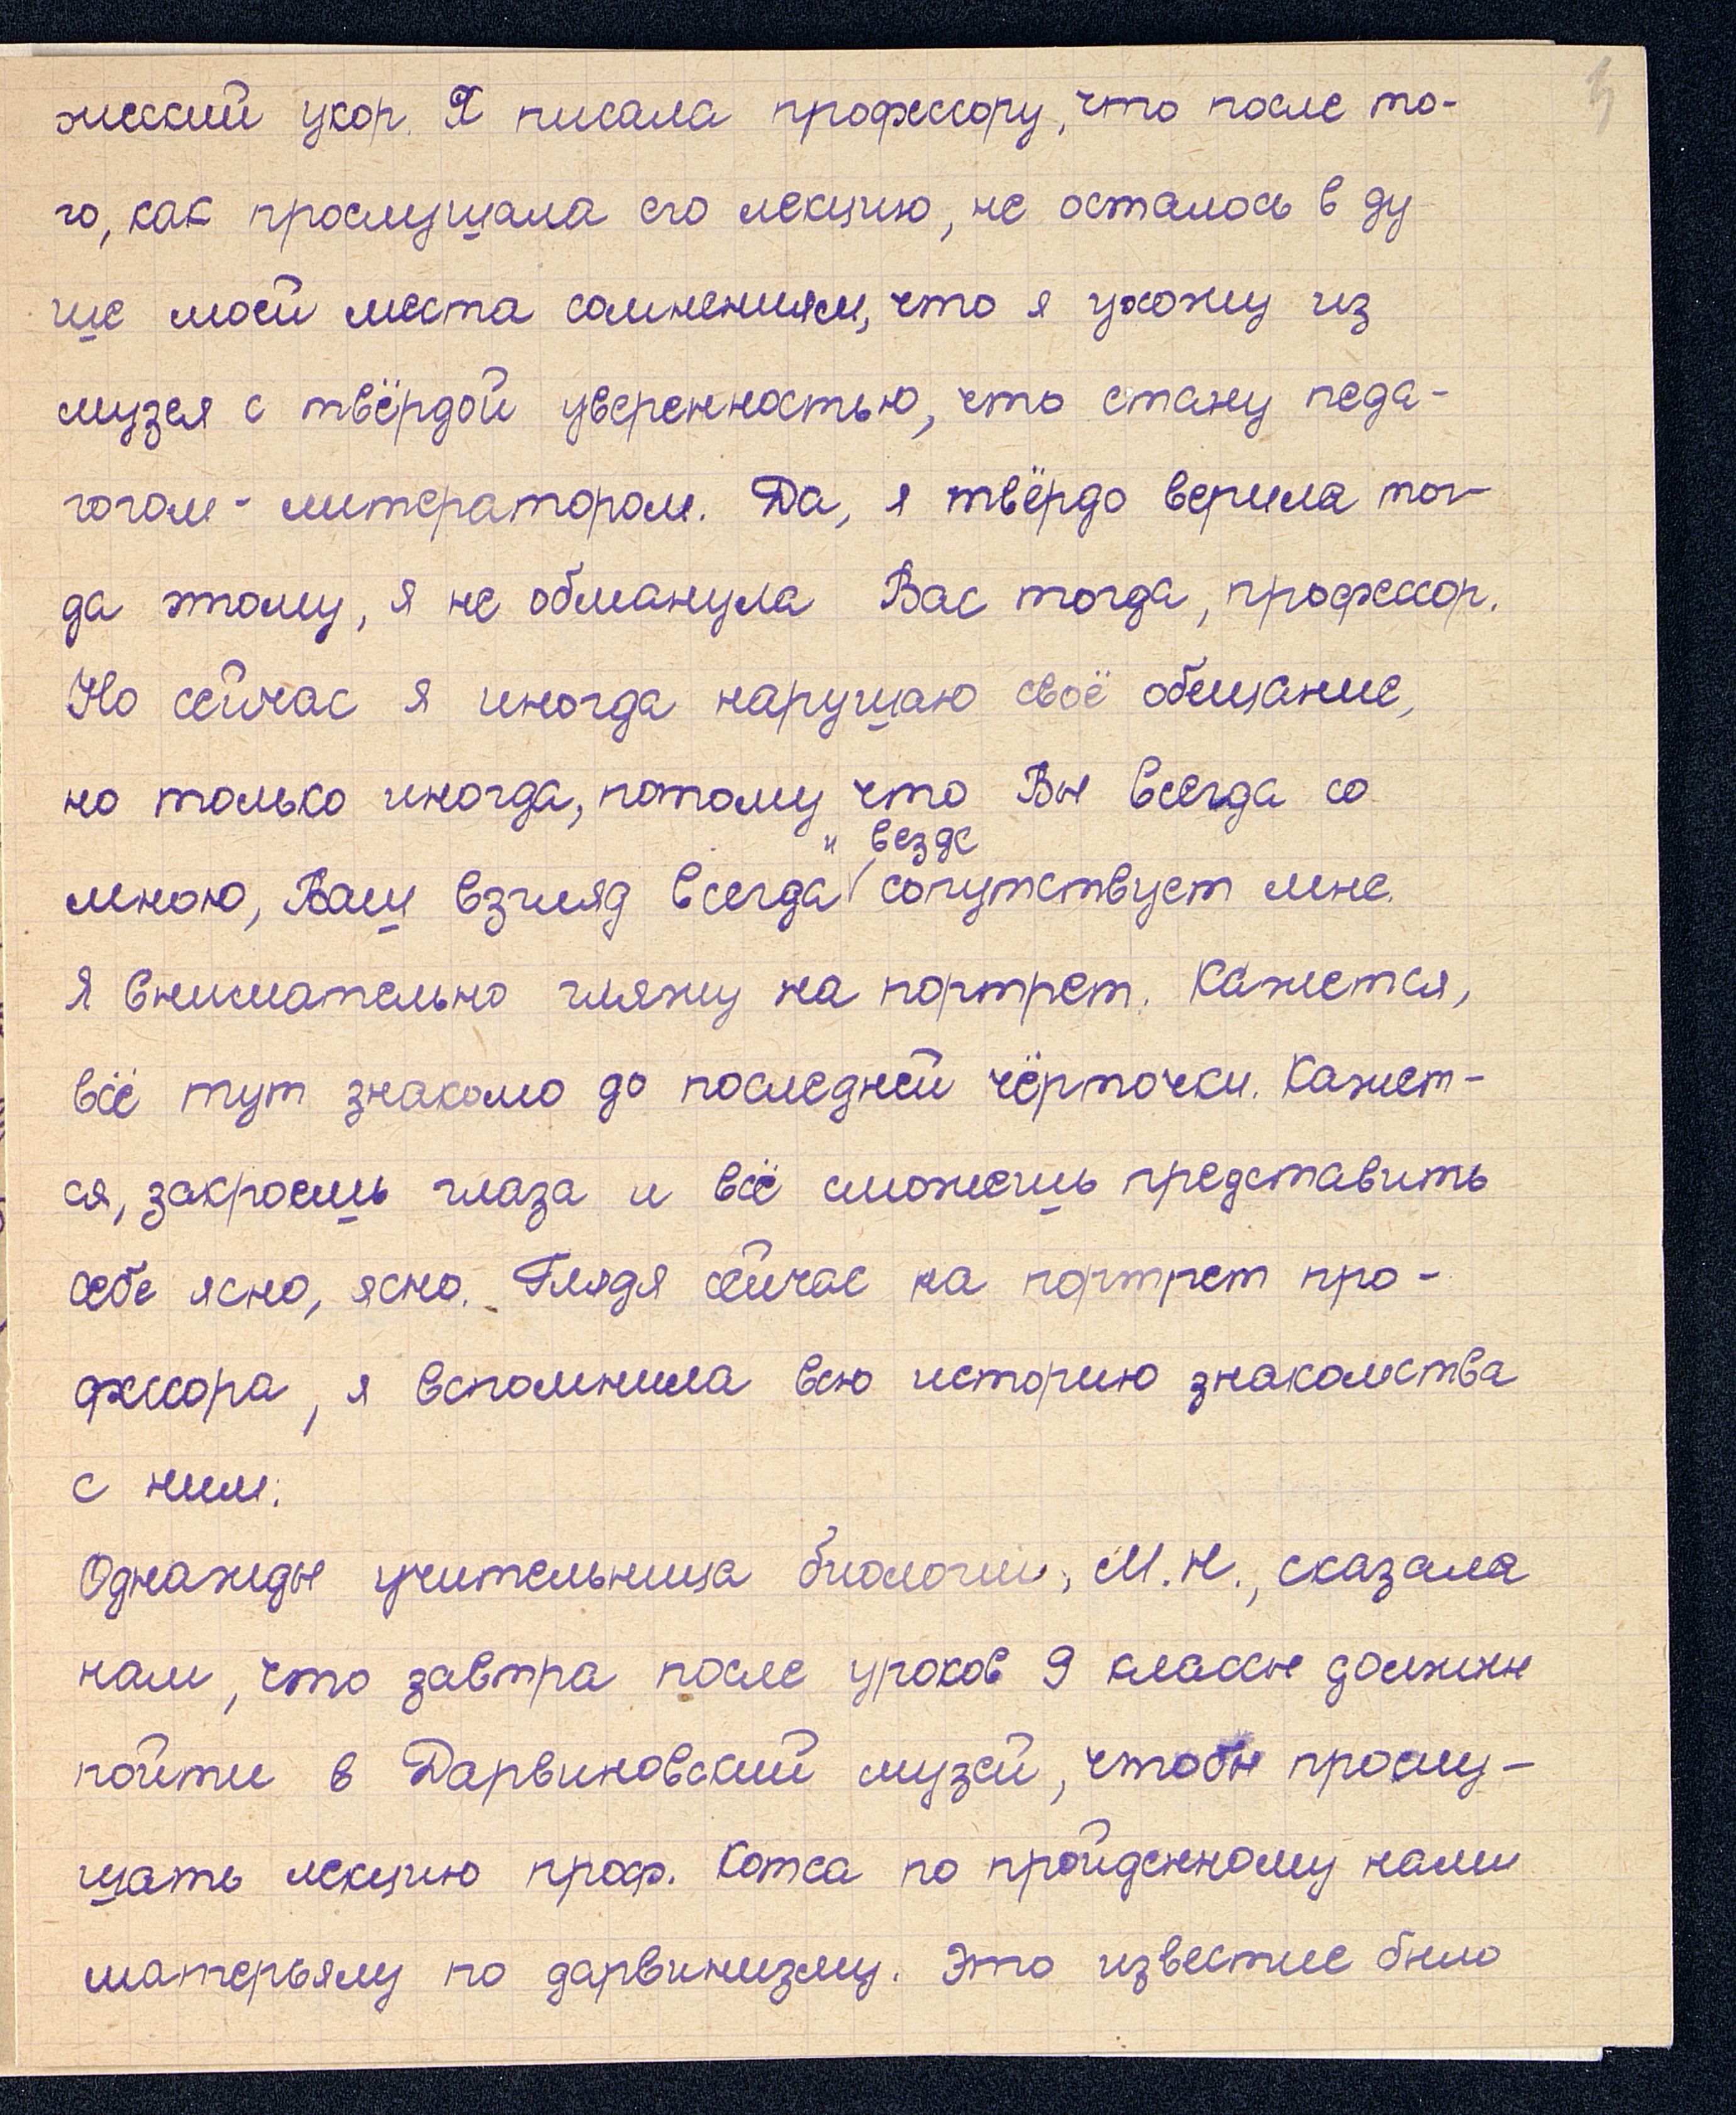 3
жеский укор. Я писала профессору, что после то-
го, как прослушала его лекцию, не осталось в ду
ше моей места сомнениям, что я ухожу из
музея с твёрдой уверенностью, что стану педа-
гогом - литератором. Да, я твёрдо верила тог-
да этому, я не обманула Вас тогда, профессор.
Но сейчас я иногда нарушаю своё обещание,
но только иногда, потому что Вы всегда со
и везде
мною, Ваш взгляд всегда сопутствует мне.
Я внимательно гляжу на портрет. Кажется,
всё тут знакомо до последней чёрточки. Кажет-
ся, закроешь глаза и всё сможешь представить
себе ясно, ясно. Глядя сейчас на портрет про-
фессора, я вспомнила всю историю знакомства
с ним:
Однажды учительница биологии, М.Н., сказала
нам, что завтра после уроков 9 классы должны
пойти в Дарвиновский музей, чтобы прослу-
шать лекцию проф. Котса по пройденному нами
матерьялу по дарвинизму. Это известие было